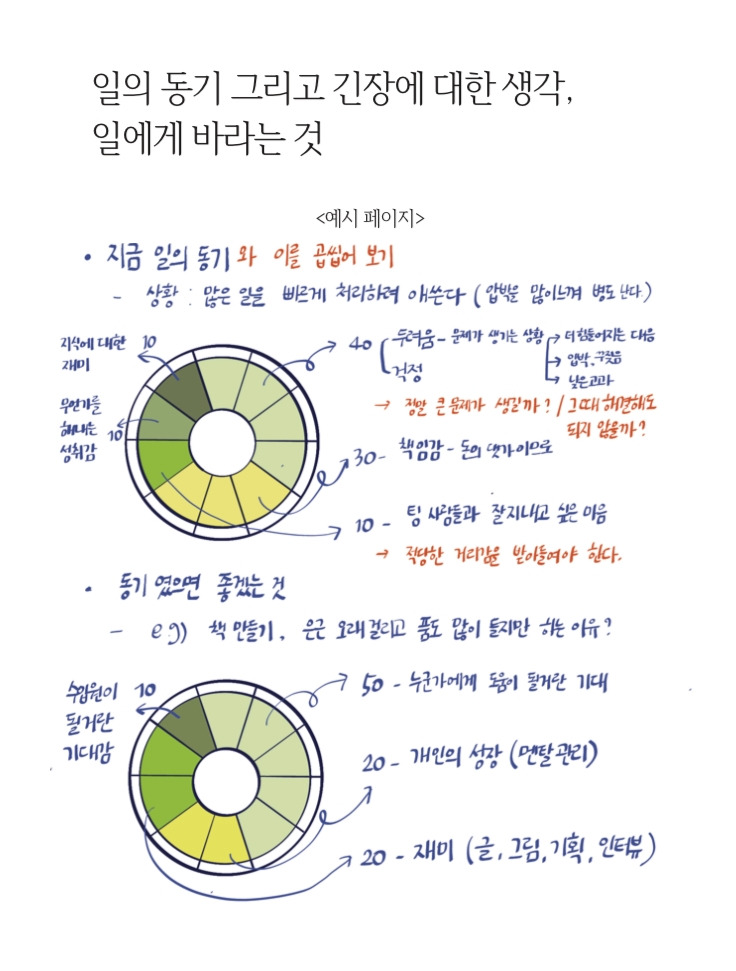 일의 동기 그리고 긴장에 대한 생각,
일에게 바라는 것
<예시 페이지>
• 지금 일의 동기와 이를 곱씹어 보기
- 상황 : 많은 일을 빠르게 처리하려 애쓴다 (압박을 많이느껴 병도 난다.)
지식에 대한 10
재미
무언가를
해내는
성취감 10
40 두려움 - 문제가 생기는 상황 → 더 힘들어지는 대응
걱정 → 압박, 꾸짖음
→ 낮은고과
→ 정말 큰 문제가 생길까? / 그때 해결해도
되지 않을까?
30 - 책임감 - 돈의 댓가이므로
10 - 팀 사람들과 잘지내고 싶은 마음
→ 적당한 거리감을 받아들여야 한다.
• 동기 였으면 좋겠는 것
- e.g) 책 만들기, 은근 오래걸리고 품도 많이 들지만 하는 이유?
수입원이 10
될거란
기대감
50 - 누군가에게 도움이 될거란 기대
20 - 개인의 성장 (멘탈관리)
20 - 재미 (글, 그림, 기획, 인터뷰)